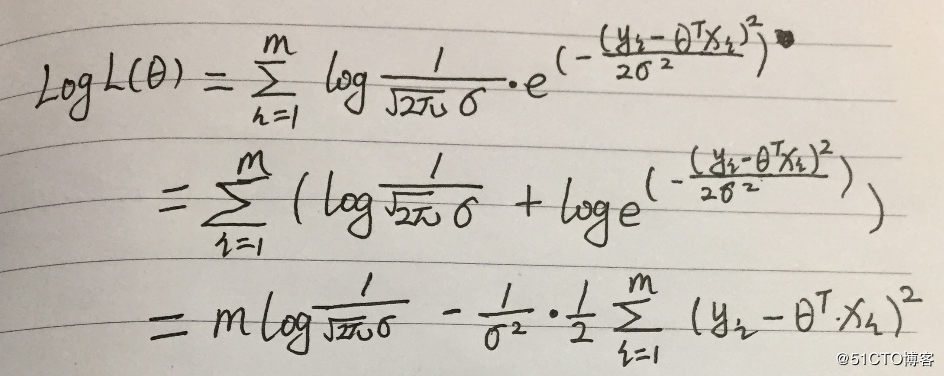 LogL(θ) = ∑_{i=1}^{m} log \frac{1}{\sqrt{2π}σ}·e^{(-\frac{(y_i-θ^Tx_i)^2}{2σ^2})}
= ∑_{i=1}^{m} (log \frac{1}{\sqrt{2π}σ} + loge^{(-\frac{(y_i-θ^Tx_i)^2}{2σ^2})})
= m log \frac{1}{\sqrt{2π}σ} - \frac{1}{σ^2}·\frac{1}{2} ∑_{i=1}^{m} (y_i-θ^T·x_i)^2
@51CTO博客